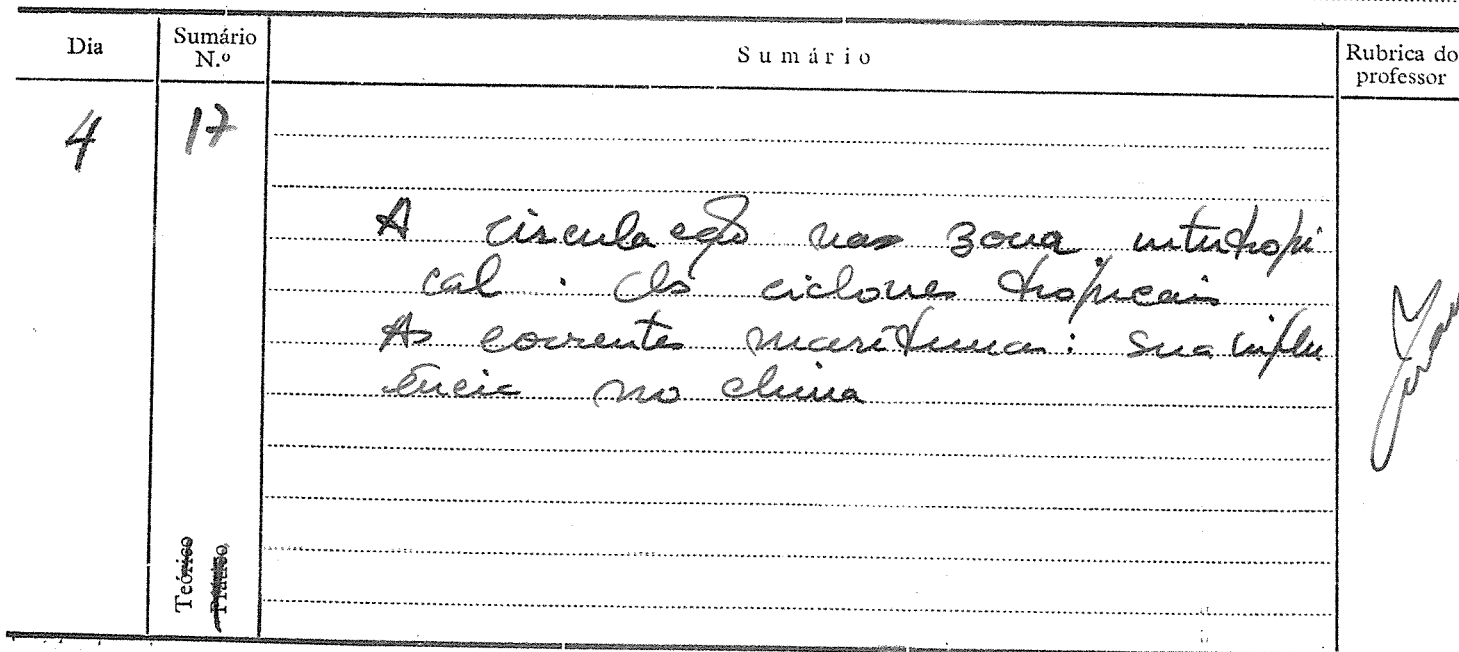 Dia
Sumário
N.º
Sumário
Rubrica do
professor
4
17
A circulação nas zona intertropi
cal. Os ciclones tropicais
As correntes maritimas: sua influ
ência no clima
Teórico
Prático